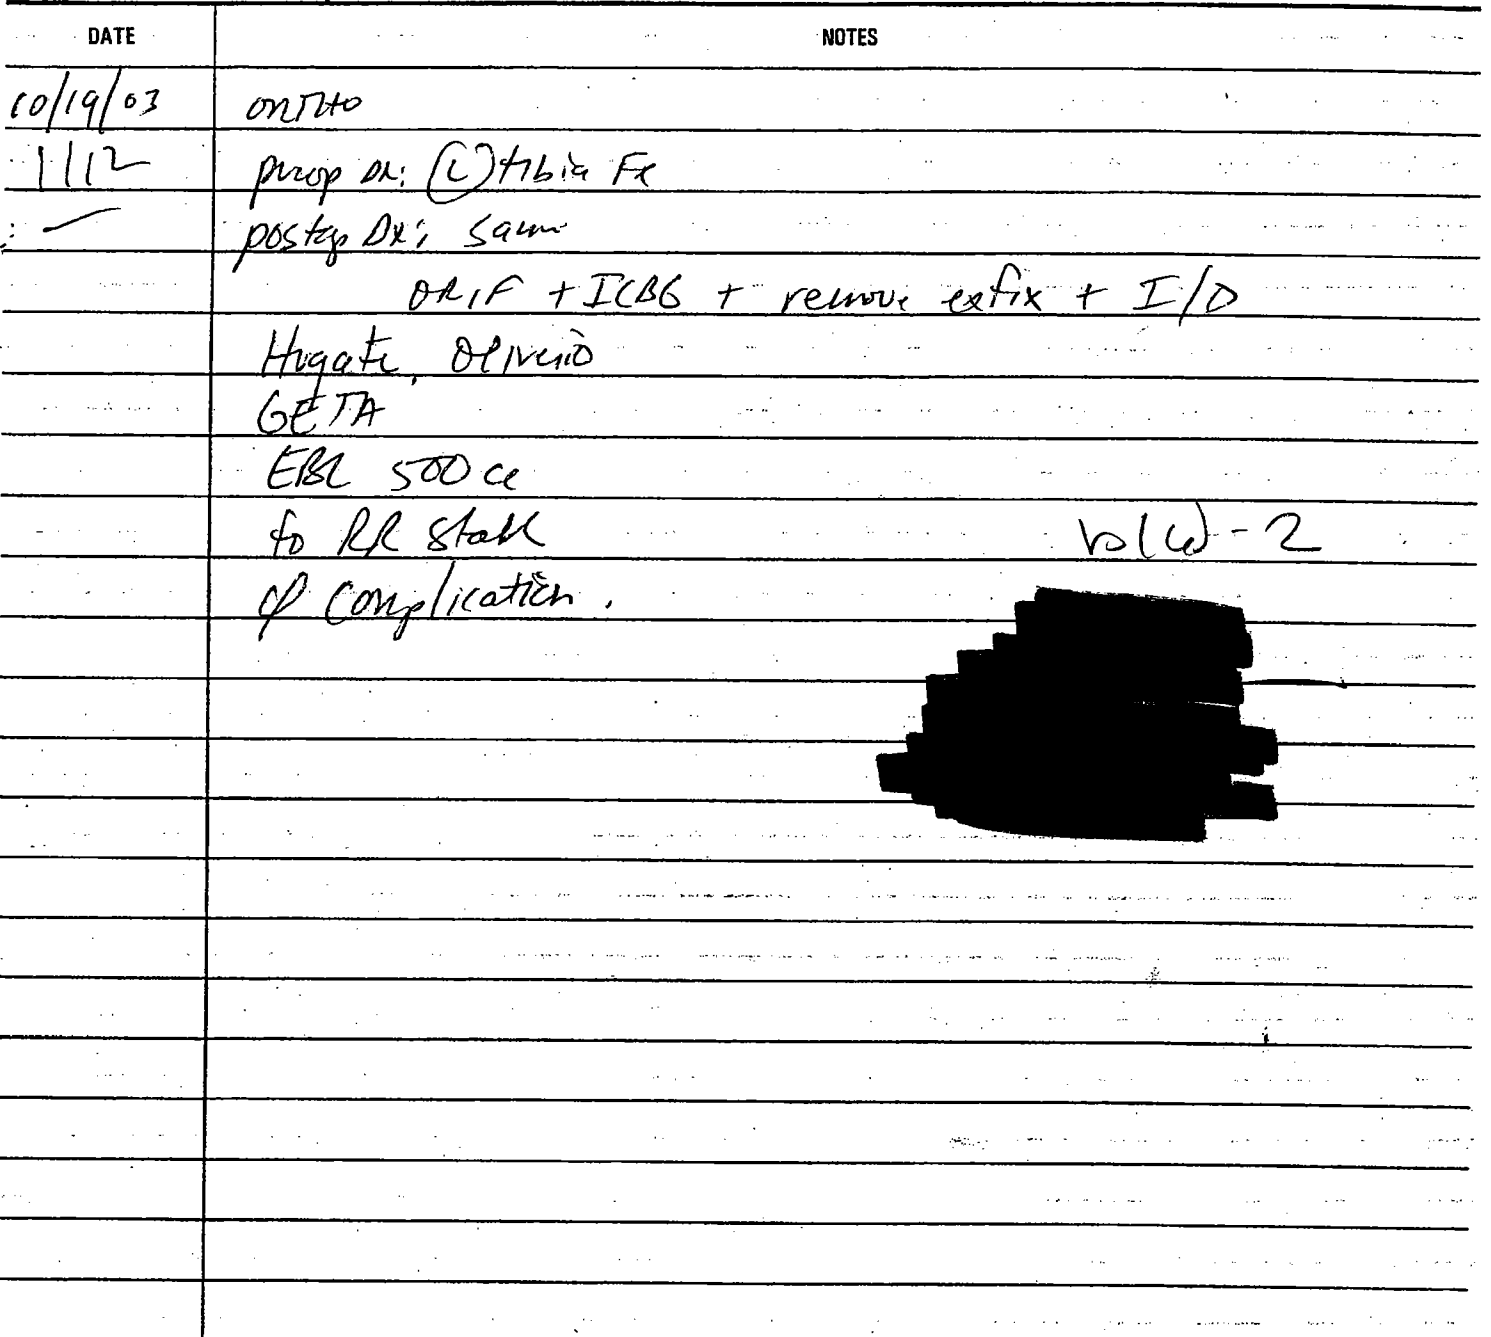 DATE NOTES
10/19/03 ORTHO
1112 preop Dx: (L) tibia Fx
postop Dx: same
ORIF + ICBG + remove exfix + I/D
Hugate, Oliverio
GETA
EBL 500 cc
to RR stable
Ø complication.
b(6)-2